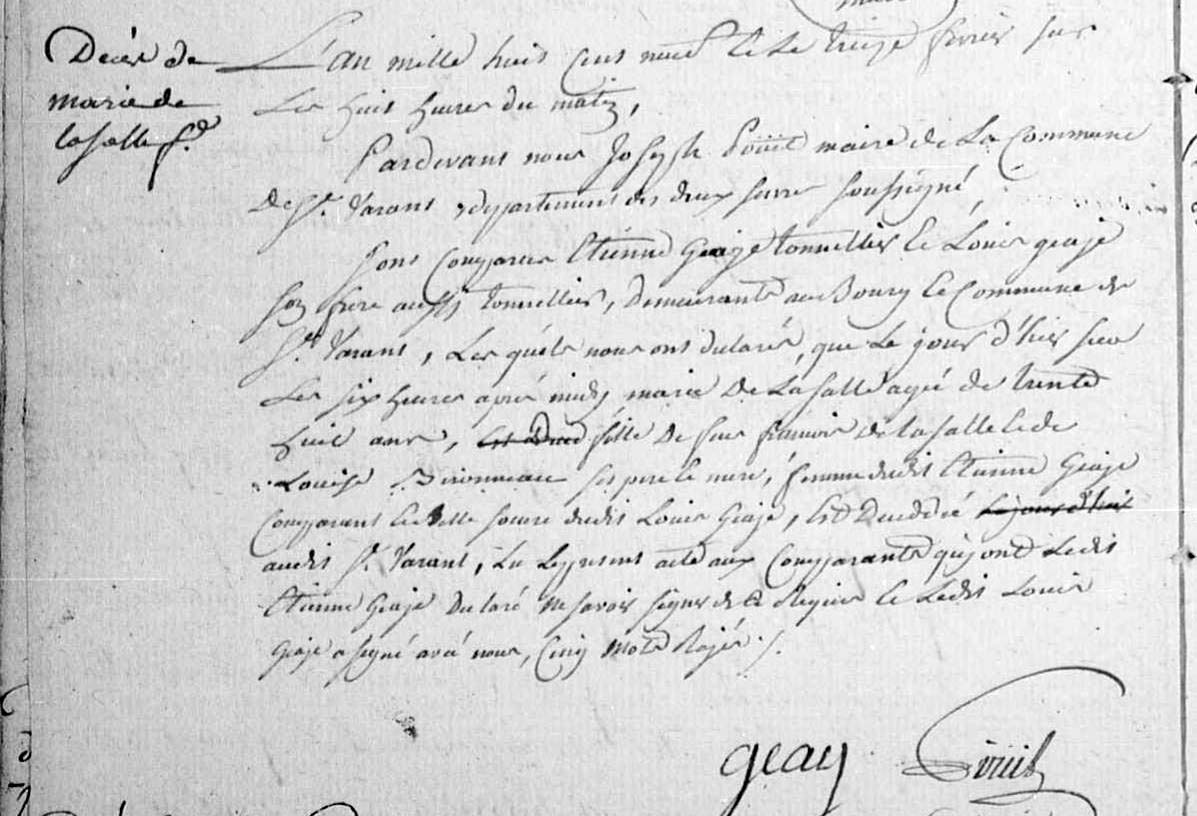 Décès de
marie de
lasalle f.e
L'an mille huit cent neuf et le treize fevrier sur
Les huit heures du matin,
Pardevant nous Joseph maire de La Commune
De St. Varant, département des deux sevres soussigné,
Sont comparus Etienne Geaije tonnellier et Louis geaije
son frere aussy tonnellier, Demeurants au Bourg et Commune de
St. Varant, Les quéls nous ont déclaré, que Le jour d'hier sur
Les six heures aprés midy marie De Lasalle agée de trente
huit ans, fille De feu francois de lasalle et de
Louise Bironneau ses pere et mere, femme dudit Etienne Geaije
comparant et belle soeure dudit Louis Geaije, Est Décédée Le jour d'hier
audit St. Varant, Lu Le present acte aux Comparants qui ont Ledit
Etienne Geaije Déclaré ne savoir signer de ce requis et Ledit Louis
Geaije a signé avec nous, Cinq mots Rayés ./.
geay